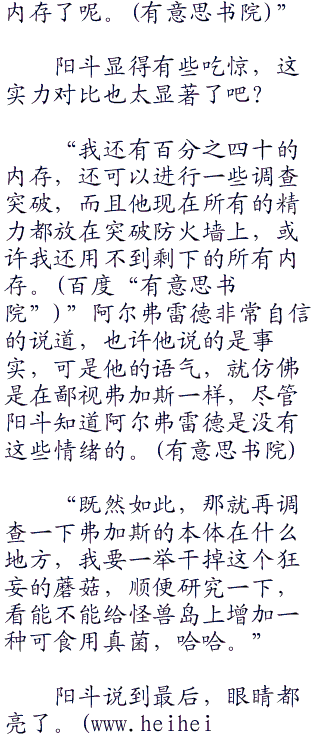 内存了呢。(有意思书院)”
阳斗显得有些吃惊，这
实力对比也太显著了吧？
“我还有百分之四十的
内存，还可以进行一些调查
突破，而且他现在所有的精
力都放在突破防火墙上，或
许我还用不到剩下的所有内
存。(百度“有意思书
院”)”阿尔弗雷德非常自信
的说道，也许他说的是事
实，可是他的语气，就仿佛
是在鄙视弗加斯一样，尽管
阳斗知道阿尔弗雷德是没有
这些情绪的。(有意思书院)
“既然如此，那就再调
查一下弗加斯的本体在什么
地方，我要一举干掉这个狂
妄的蘑菇，顺便研究一下，
看能不能给怪兽岛上增加一
种可食用真菌，哈哈。”
阳斗说到最后，眼睛都
亮了。(www.heihei